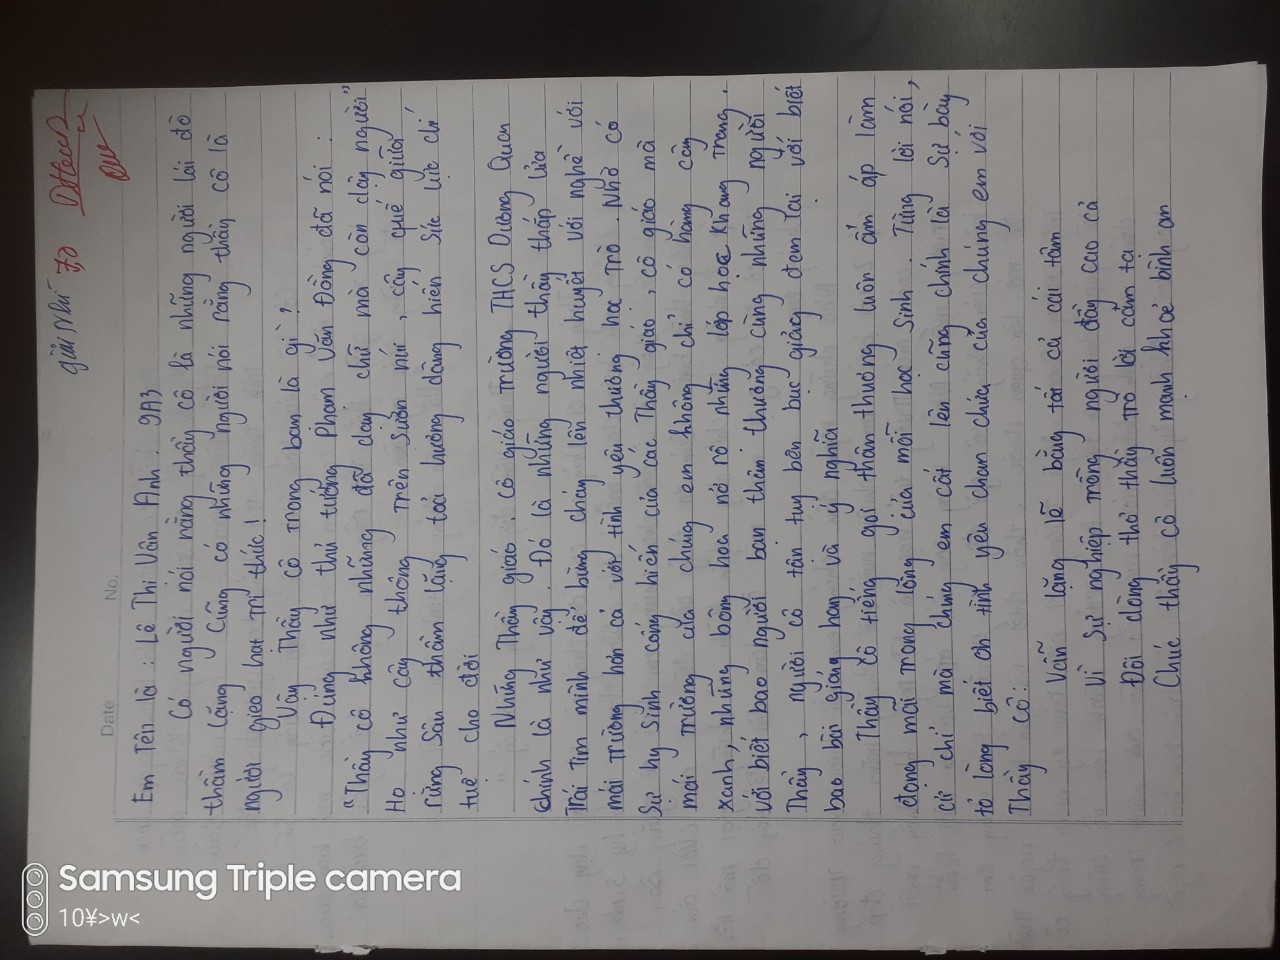 giải nhì 70
Date No.
Em Tên là : Lê Thi Vân Anh . 9A3
Có người nói rằng thầy cô là những người lái đò
thầm lặng cũng có những người nói rằng thầy cô là
người gieo hạt tri thức !
Vậy Thầy cô trong bạn là gì ?
Đúng như thủ tướng Phạm Văn Đồng đã nói :
"Thầy cô không những đã dạy chữ mà còn dạy người"
Họ như cây thông trên sườn núi , cây quế giữa
rừng sâu thầm lặng toả hương dâng hiến sức lực chí
tuệ cho đời
Những Thầy giáo . cô giáo trường THCS Dương Quan
chính là như vậy . Đó là những người thầy thắp lửa
trái tim mình để bừng cháy lên nhiệt huyết với nghề với
mái trường hơn cả với tình yêu thương học trò . Nhờ có
Sự hy sinh cống hiến của các Thầy giáo , cô giáo mà
mái trường của chúng em không chỉ có hàng cây
xanh , những bông hoa nở rô những lớp học khang trang .
với biết bao người bạn thân thương cùng những người
Thầy , người cô tận tuỵ bên bục giảng đem lại với biết
bao bài giảng hay và ý nghĩa
Thầy cô tiếng gọi thân thương luôn ấm áp làm
đọng mãi trong lòng của mỗi học sinh . Từng lời nói ,
cử chỉ mà chúng em cất lên cũng chính là Sự bày
tỏ lòng biết ơn tình yêu chan chứa của chúng em với
Thầy cô :
Vẫn lặng lẽ bằng tất cả cái tâm
Vì Sự nghiệp trồng người đầy cao cả
Đôi dòng thơ thắp trò lời cảm tạ
Chúc thầy cô luôn mạnh khoẻ bình an
Samsung Triple camera
10¥>w<